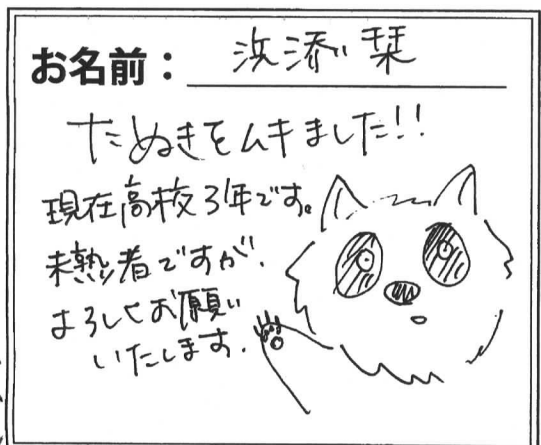 お名前： 浜添 栞
たぬきをムキました!!
現在高校3年です。
未熟者ですが、
よろしくお願い
いたします。